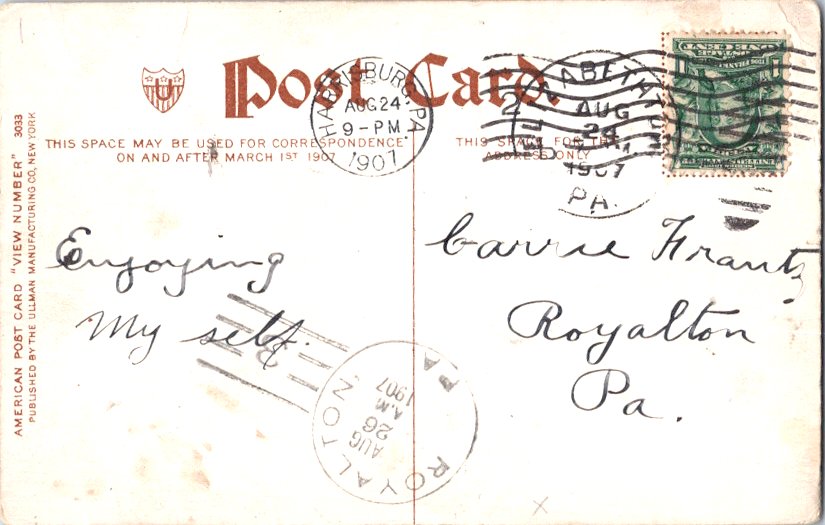 Post Card
THIS SPACE MAY BE USED FOR CORRESPONDENCE
ON AND AFTER MARCH 1ST 1907
THIS SPACE FOR THE
ADDRESS ONLY
HARRISBURG, PA.
AUG 24
9 - PM
1907
ELIZABETHTOWN
AUG
24
1907
PA.
2
ONE CENT
1
U
AMERICAN POST CARD "VIEW NUMBER" 3033
PUBLISHED BY THE ULLMAN MANUFACTURING CO., NEW YORK
Enjoying
My self.
Carrie Frantz
Royalton
Pa.
ROYALTON
PA
AUG
26
A.M.
1907
x